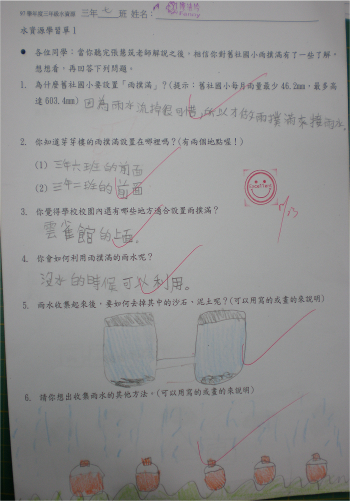 97學年度三年級水資源 三年 七 班 姓名:
水資源學習單1
● 各位同學:當你聽完張慈芮老師解說之後,相信你對舊社國小雨撲滿有了一些了解,
想想看,再回答下列問題。
1. 為什麼舊社國小要設置「雨撲滿」?(提示:舊社國小每月雨量最少 46.2mm,最多高
達 603.4mm)
因為雨水流掉很可惜,所以才做雨撲滿來接雨水。
2. 你知道芽芽樓的雨撲滿設置在哪裡嗎?(有兩個地點喔!)
(1) 三年六班的前面
(2) 三年二班的前面
3. 你覺得學校校園內還有哪些地方適合設置雨撲滿?
雲雀館的上面。
4. 你會如何利用雨撲滿的雨水呢?
沒水的時候可以利用。
5. 雨水收集起來後,要如何去掉其中的沙石、泥土呢?(可以用寫的或畫的來說明)
6. 請你想出收集雨水的其他方法。(可以用寫的或畫的來說明)